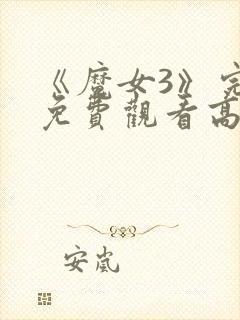 《魔女3》完
免費觀看高
安嵐